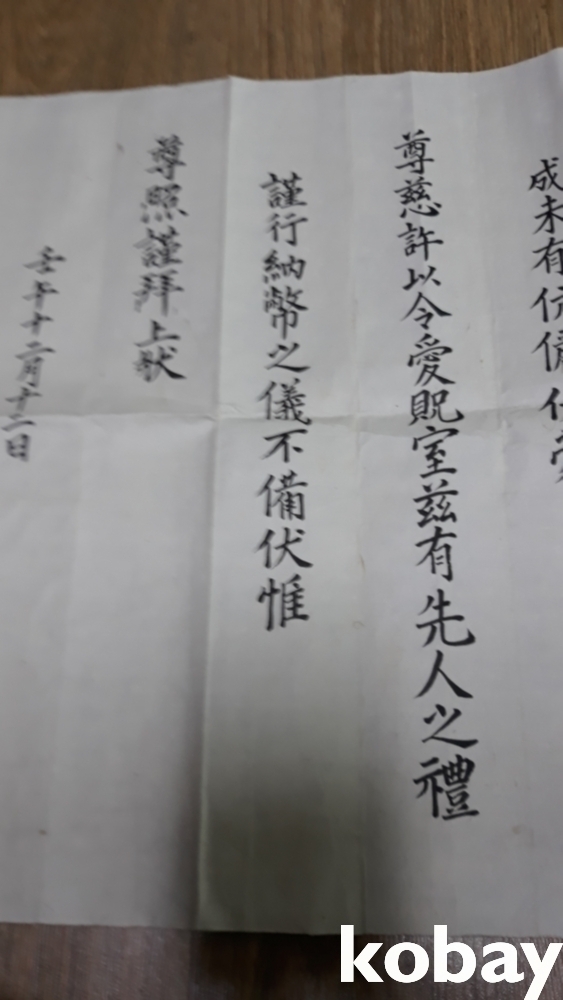 成未有伉儷伏蒙
尊慈許以令愛貺室兹有先人之禮
謹行納幣之儀不備伏惟
尊照謹拜上狀
壬午十二月十二日
kobay